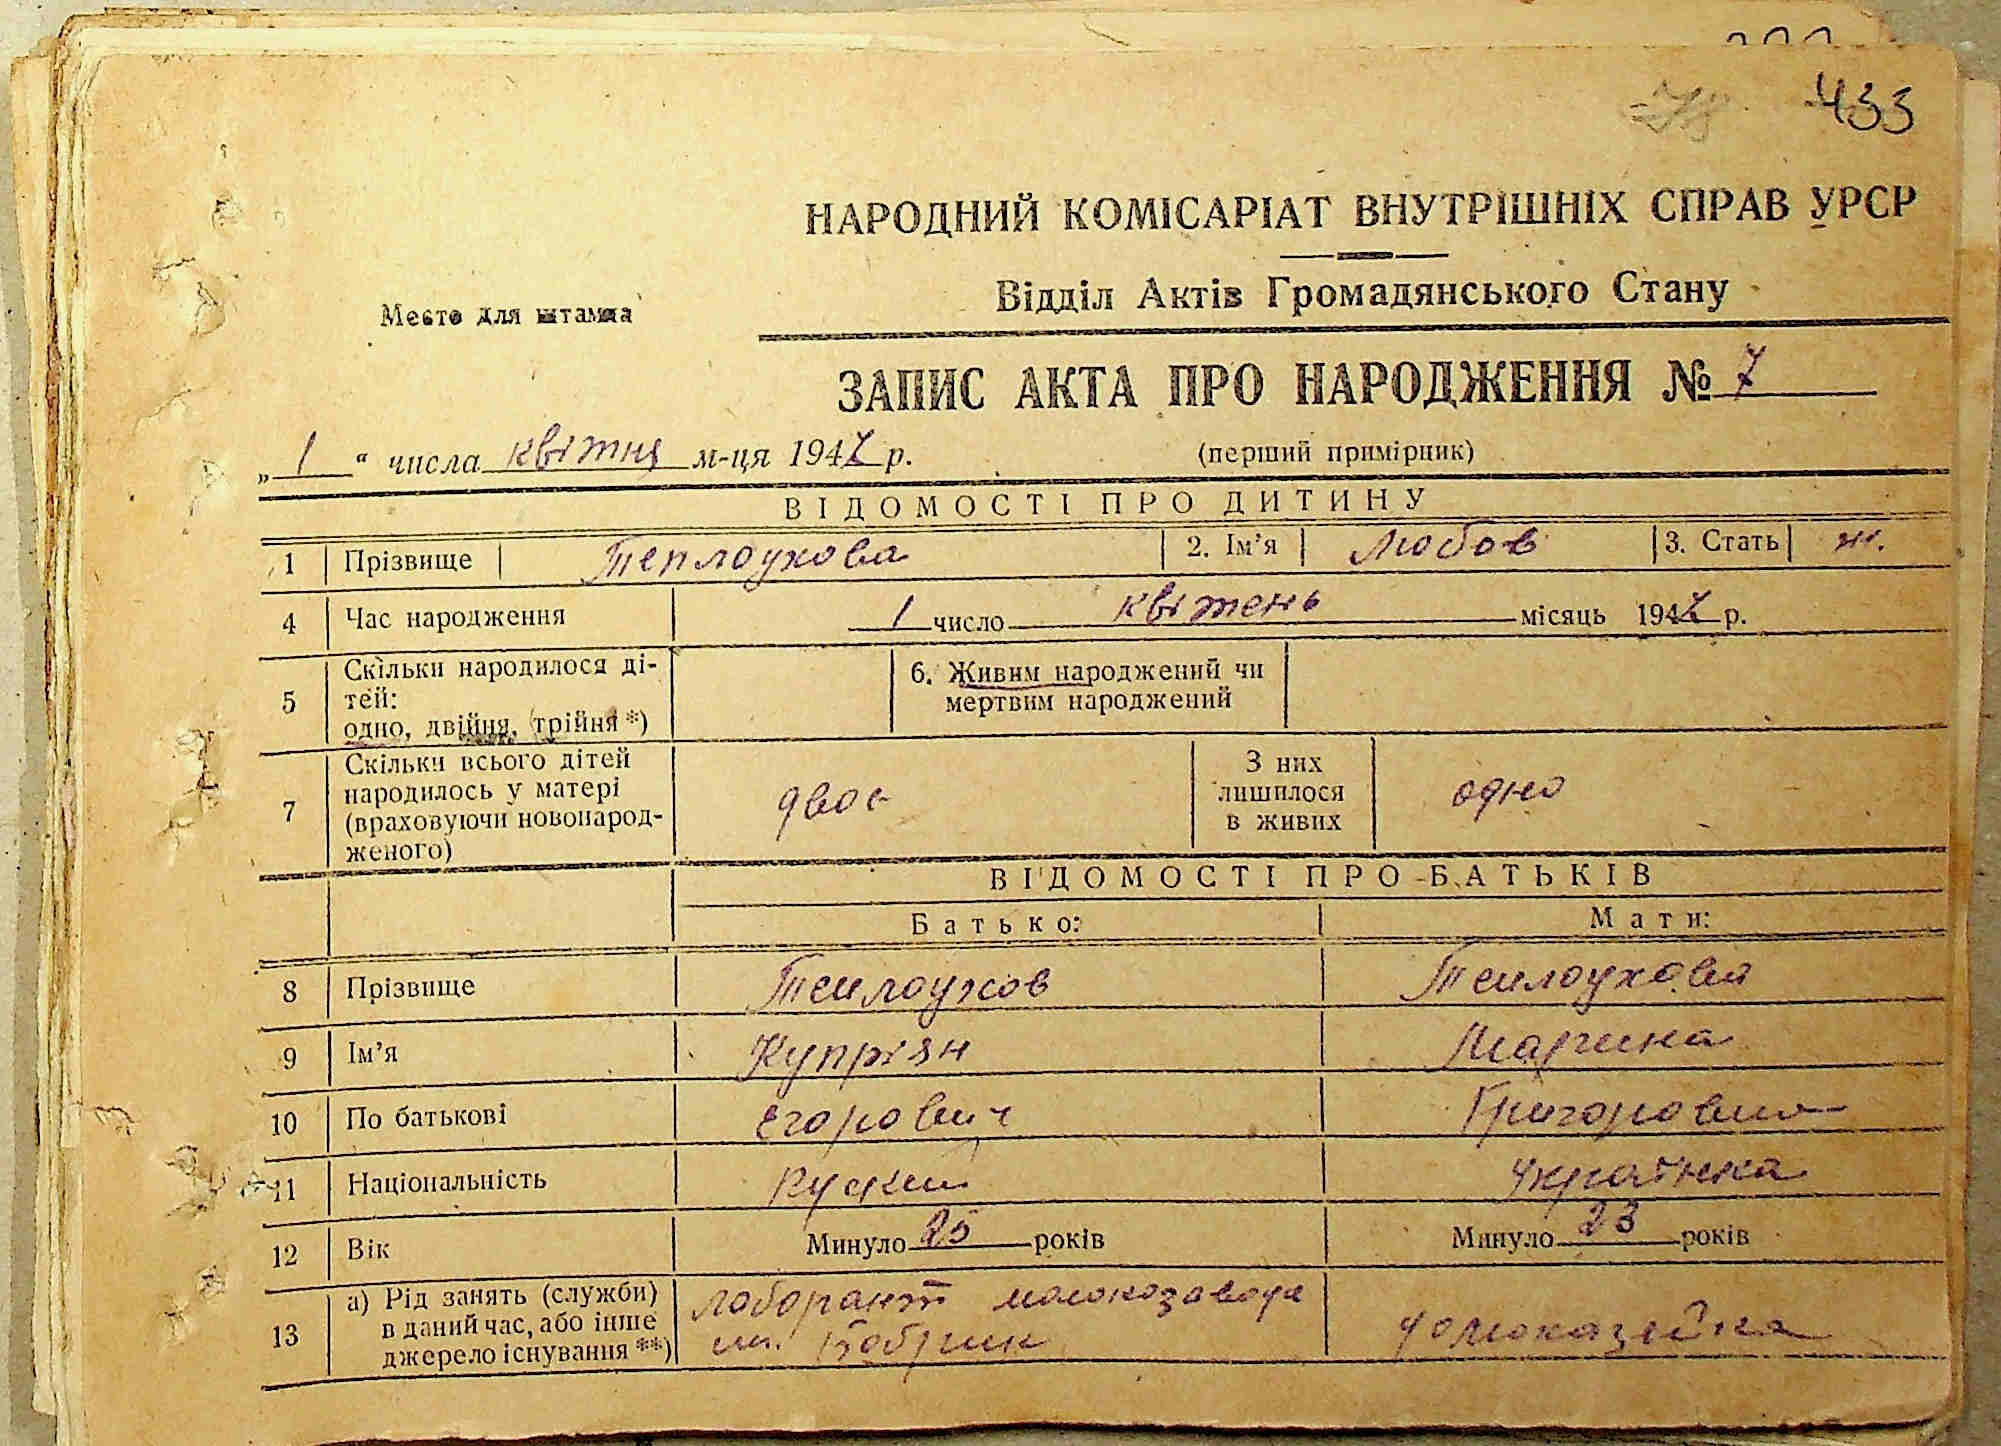 433
НАРОДНИЙ КОМІСАРІАТ ВНУТРІШНІХ СПРАВ УРСР
Відділ Актів Громадянського Стану
Место для штампа
ЗАПИС АКТА ПРО НАРОДЖЕННЯ № 7
„1“ числа квітня м-ця 1947 р. (перший примірник)
ВІДОМОСТІ ПРО ДИТИНУ
1 Прізвище Теплоухова 2. Ім'я Любов 3. Стать ж.
4 Час народження 1 число квітень місяць 1947 р.
5 Скільки народилося дітей: одно, двійня, трійня *) 6. Живим народжений чи мертвим народжений
7 Скільки всього дітей народилось у матері (враховуючи новонародженого) двоє З них лишилося в живих одно
ВІДОМОСТІ ПРО БАТЬКІВ
Батько: Мати:
8 Прізвище Теплоухов Теплоухова
9 Ім'я Купріян Марина
10 По батькові Єгорович Григоровна
11 Національність Руский Українка
12 Вік Минуло 25 років Минуло 23 років
13 а) Рід занять (служби) в даний час, або інше джерело існування **) лоборант молокозавода Бобрик домохазяйка